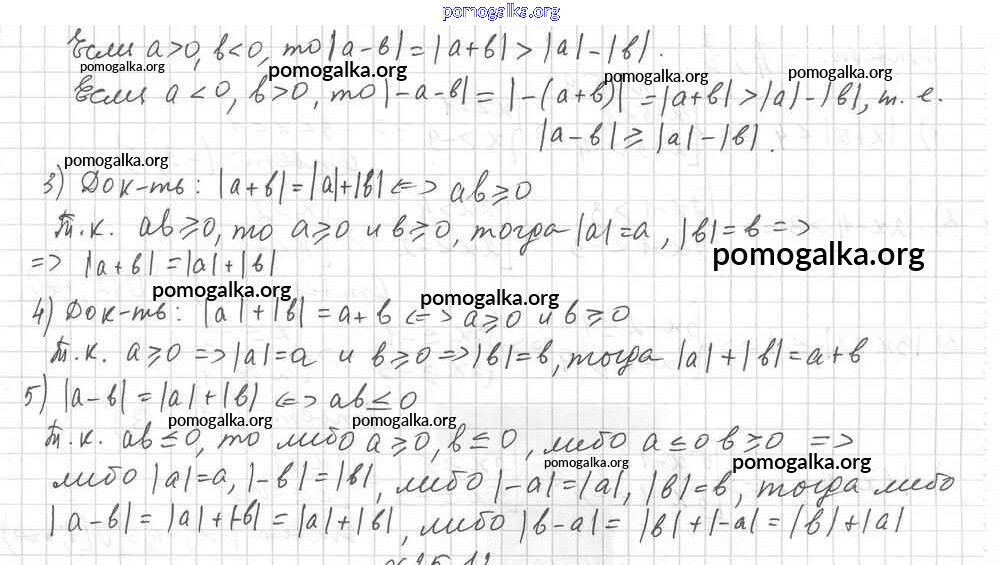 pomogalka.org
Если a>0, в<0, то |a-в| = |a+в| > |a|-|в|.
pomogalka.org pomogalka.org
pomogalka.org pomogalka.org
Если a<0, в>0, то |-a-в| = |-(a+в)| = |a+в| > |a|-|в|, т. е.
|a-в| ⩾ |a|-|в|.
pomogalka.org
3) Док-ть: |a+в| = |a|+|в| <=> aв⩾0
Т.к. aв⩾0, то a⩾0 и в⩾0, тогда |a|=a, |в|=в =>
pomogalka.org
=> |a+в| = |a|+|в|
pomogalka.org pomogalka.org
4) Док-ть: |a|+|в| = a+в <=> a⩾0 и в⩾0
Т.к. a⩾0 => |a|=a и в⩾0 => |в|=в, тогда |a|+|в| = a+в
5) |a-в| = |a|+|в| <=> aв≤0
pomogalka.org pomogalka.org
Т.к. aв≤0, то либо a⩾0, в≤0, либо a≤0 в⩾0 =>
pomogalka.org pomogalka.org
либо |a|=a, |-в|=|в|, либо |-a|=|a|, |в|=в, тогда либо
|a-в| = |a|+|-в| = |a|+|в|, либо |в-a| = |в|+|-a| = |в|+|a|